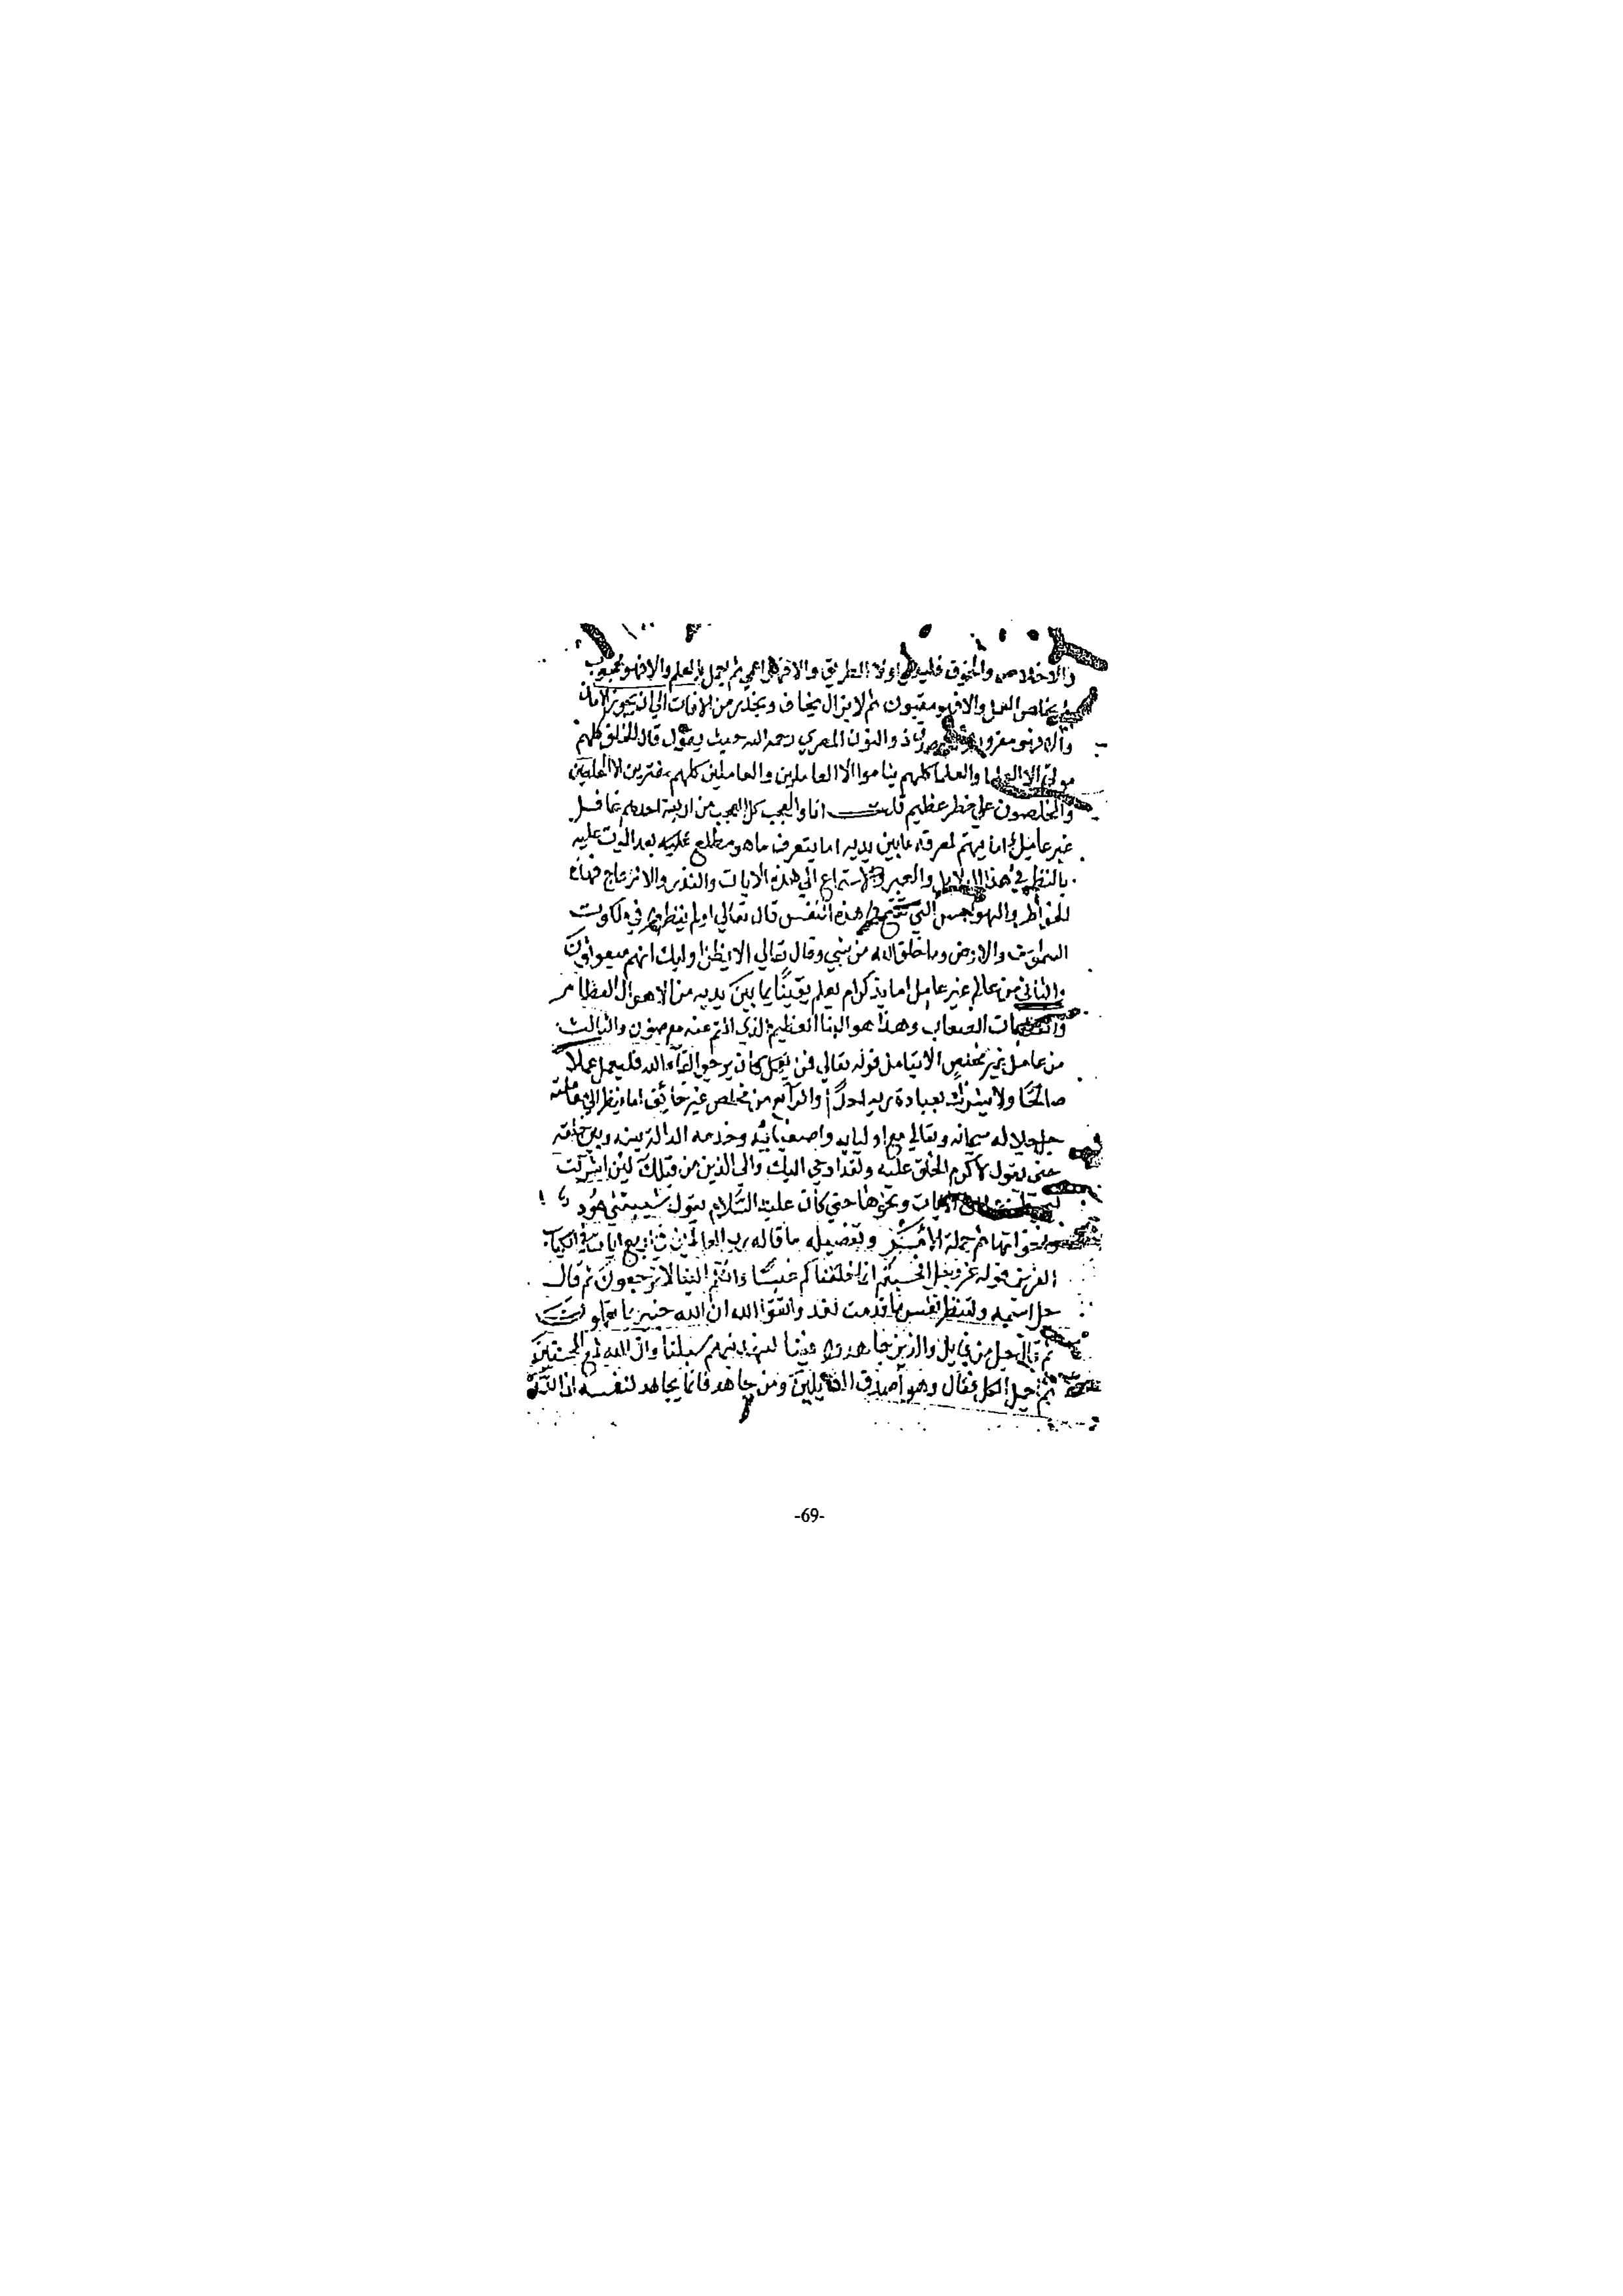 والاخلاص والخوف فليعلم اولا الطريق والا فهو اعمي ثم يعمل بالعلم والا فهو محجوب
ثم يخلص العمل والا فهو مغبون ثم لا يزال يخاف ويحذر من الافات الي ان يجد الامان
والا فهو مغرور ذو النون المصري رحمه الله حيث يقول قال الخلق كلهم
موتي الا العلما والعلما كلهم نيام الا العاملين والعاملين كلهم مغترين الا المخلصين
والمخلصون علي خطر عظيم قلت انا والعجب كل العجب من اربعة احدهم غافل
غير عامل اما يهتم لمعرفة ما بين يديه اما يتعرف ما هو مطلع عليه بعد الموت عليه
بالنظر في هذا الدلايل والعبر والاستماع الي هذه الايات والنذر والانزعاج فهذه
الخواطر والهواجس التي في هذه النفس قال تعالي اولم ينظروا في ملكوت
السموات والارض وما خلق الله من شي وقال تعالي الا يظن اوليك انهم مبعوثون
والثاني من عالم غير عامل اما يذكر ام يعلم يقينا بما بين يديه من الاهوال العظام
والعقبات الصعاب وهذا هو النبا العظيم الذي انتم عنه معرضون والثالث
من عامل غير مخلص الا يتامل قوله تعالي فمن كان يرجوا لقاء الله فليعمل عملا
صالحا ولا يشرك بعبادة ربه احدا والرابع من مخلص غير خائف اما ينظر الي معاملته
جل جلاله سبحانه وتعالي مع اوليايه واصفيائه وخدمه الدالة بينه وبين خلقه
حتى يقول لاكرم الخلق عليه ولقد اوحي اليك والى الذين من قبلك لئن اشركت
ونحوها حتي كان عليه السلام يقول شيبتني هود
واخواتها ثم جملة الامر وتفصيله ما قاله رب العالمين في اربع ايات في الكتاب
العزيز قوله عز وجل افحسبتم انما خلقناكم عبثا وانكم الينا لا ترجعون ثم قال
جل اسمه ولتنظر نفس ما قدمت لغد واتقوا الله ان الله خبير بما تعملون
ثم قال جل من قايل والذين جاهدوا فينا لنهدينهم سبلنا وان الله لمع المحسنين
ثم اجمل الكل فقال وهو اصدق القايلين ومن جاهد فانما يجاهد لنفسه ان الله
-69-